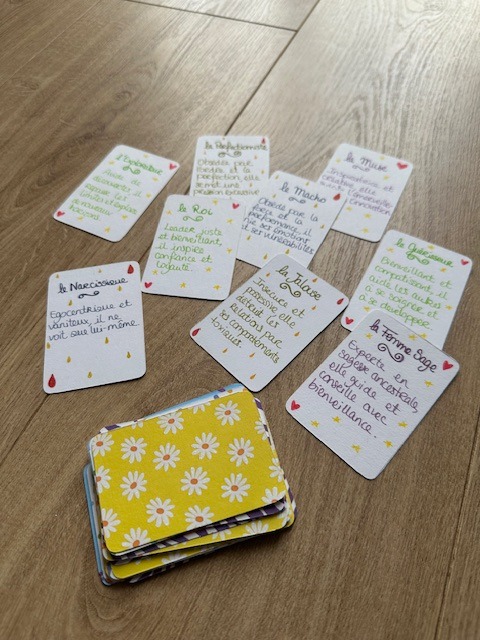 l'Explorateur
Avide de
limites et explore
de nouveaux
horizons.
la Perfectionniste
Obsédée par
l'ordre et la
perfection, elle
se met une
pression excessive
la Muse
Inspiratrice et
créative, elle
l'innovation
le Roi
Leader juste
et bienveillant,
il inspire
confiance et
loyauté.
le Macho
Obsédé par la
force et la
performance, il
nie ses émotions
et ses vulnérabilités
le Guérisseur
Bienveillant et
compatissant, il
aide les autres
à se soigner et
à se développer
le Narcissique
Egocentrique et
vaniteux, il ne
voit que lui-même.
la Jalouse
Insécure et
possessive, elle
détruit les
relations par
ses comportements
toxiques.
la Femme Sage
Experte en
sagesse ancestrale,
elle guide et
conseille avec
bienveillance.